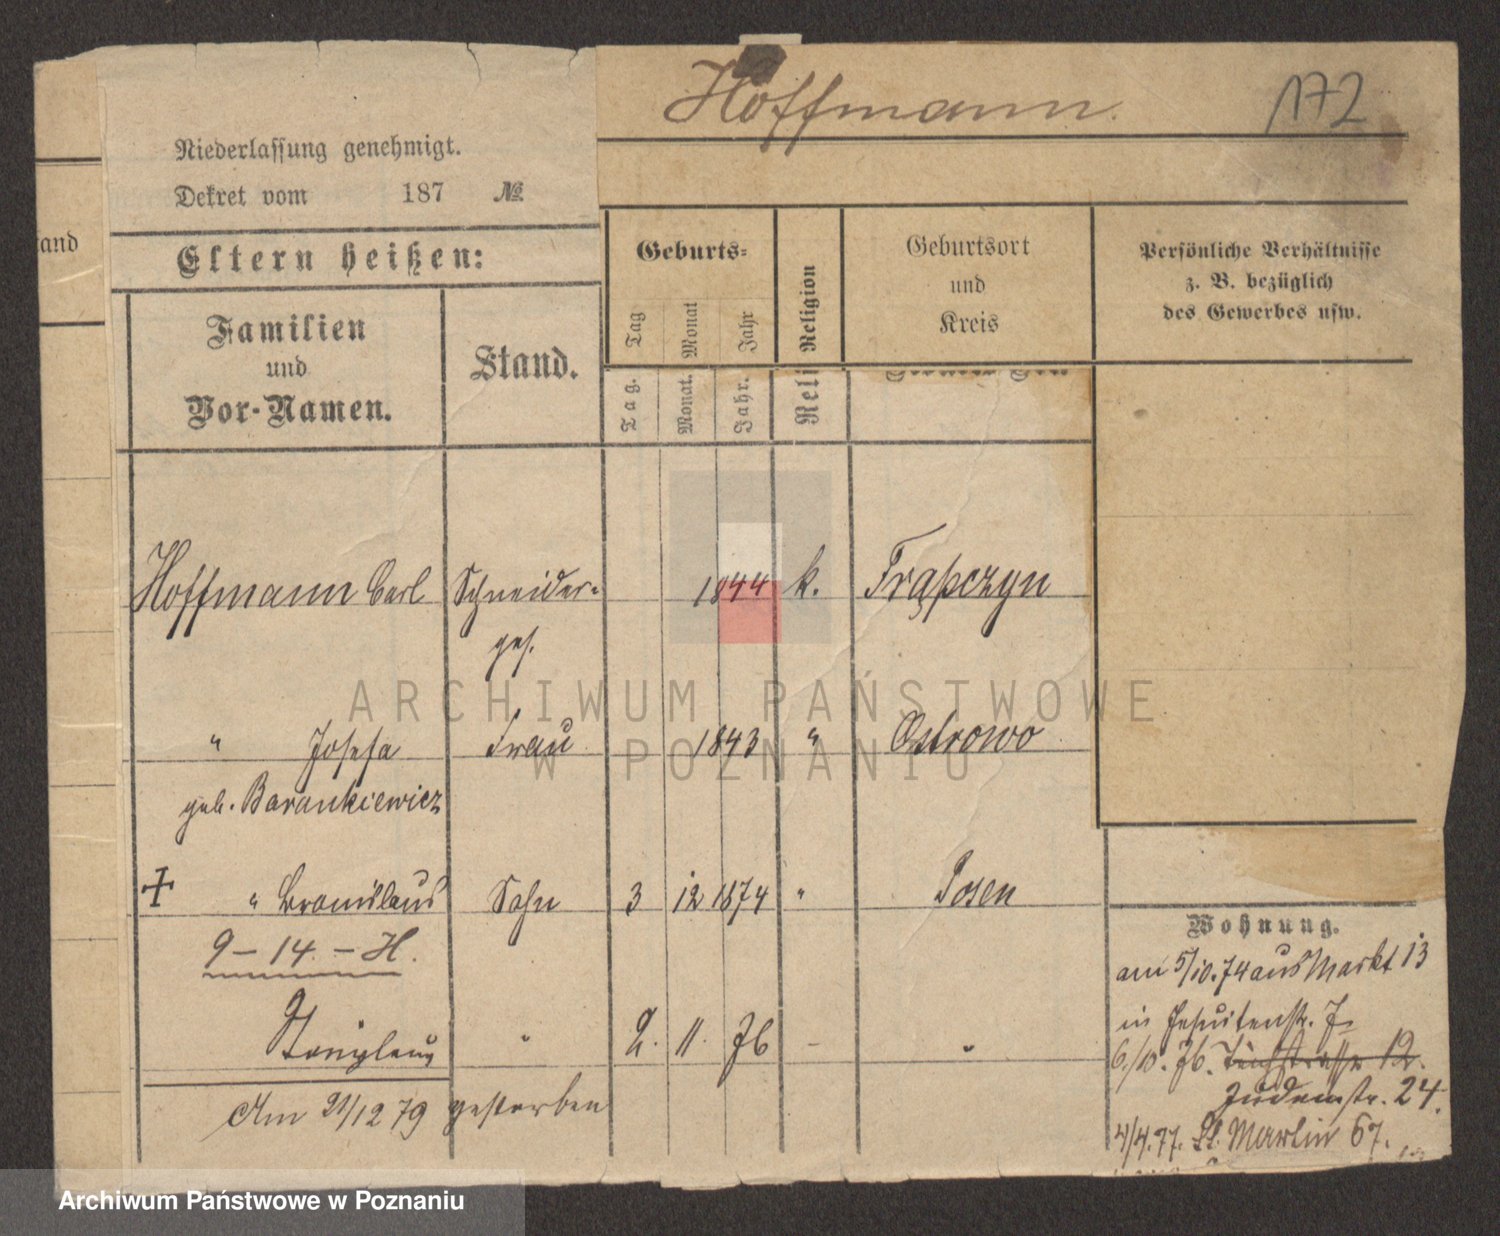 Hoffmann.
172
Niederlassung genehmigt.
Dekret vom 187 №
and
Eltern heißen:
Familien
und
Vor-Namen.
Stand.
Geburts-
Tag
Monat
Jahr
Religion
Geburtsort
und
Kreis
Persönliche Verhältnisse
z. B. bezüglich
des Gewerbes usw.
Tag.
Monat.
Jahr.
Reli
Hoffmann Carl Schneider- 1844 k. Trąpczyn
ges.
" Josefa Frau 1843 " Ostrowo
geb. Barankiewicz
✝ " Bronislaus Sohn 3 12 1874 " Posen
9 – 14. – H.
Stanislaus " 2. 11. 76 – "
Am 21/12 79 gestorben
Wohnung.
am 5/10.74 aus Markt 13
in Jesuitenstr. 7
6./10. 76. 12.
Judenstr. 24.
4/4.77. St. Martin 67.
ARCHIWUM PAŃSTWOWE
W POZNANIU
Archiwum Państwowe w Poznaniu